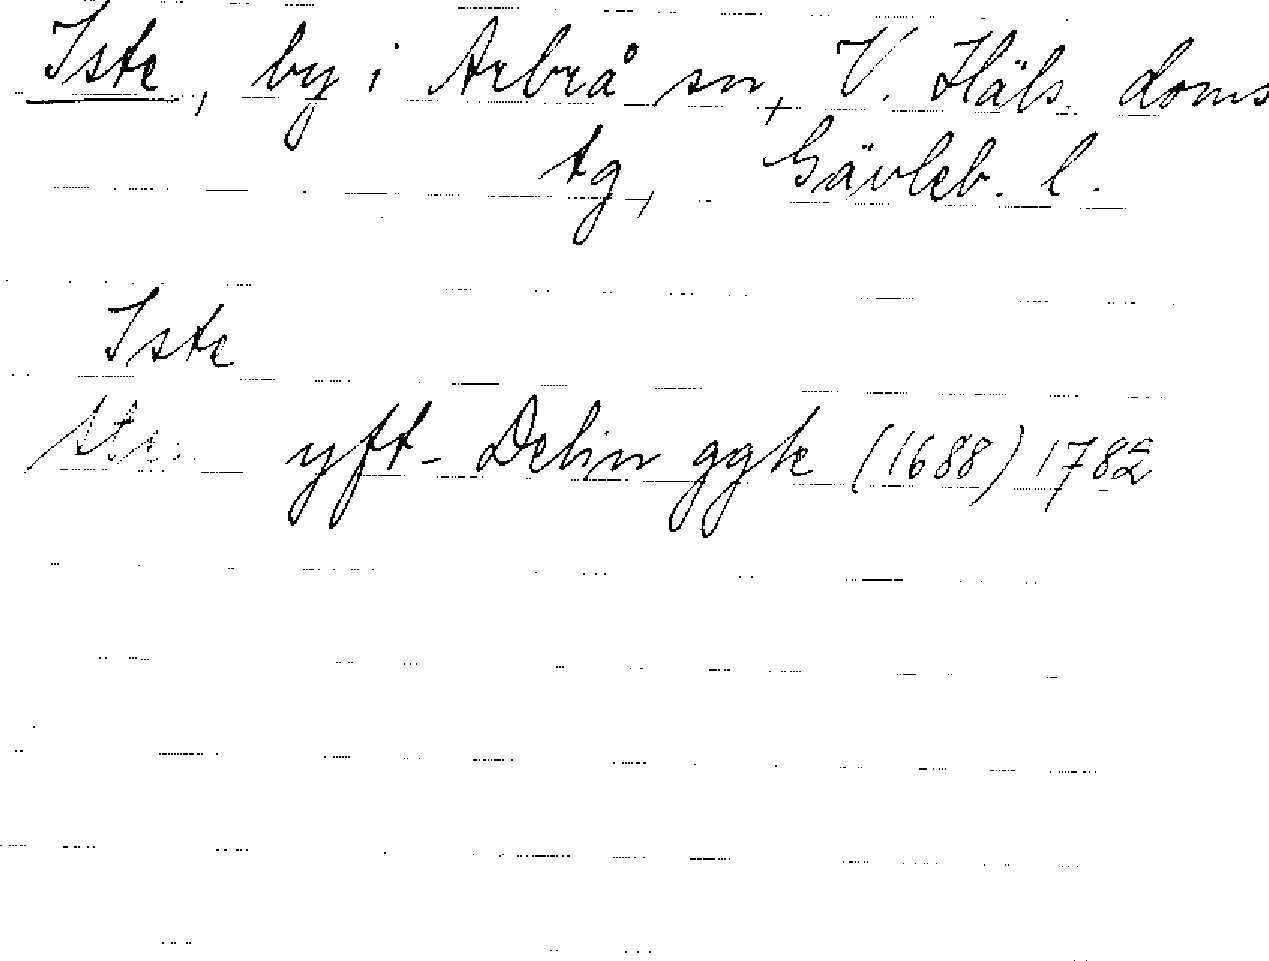 Iste, by i Arbrå sn, V. Häls. doms
tg, Gävleb. l.
Iste
yft- Delin ggk (1688) 1782